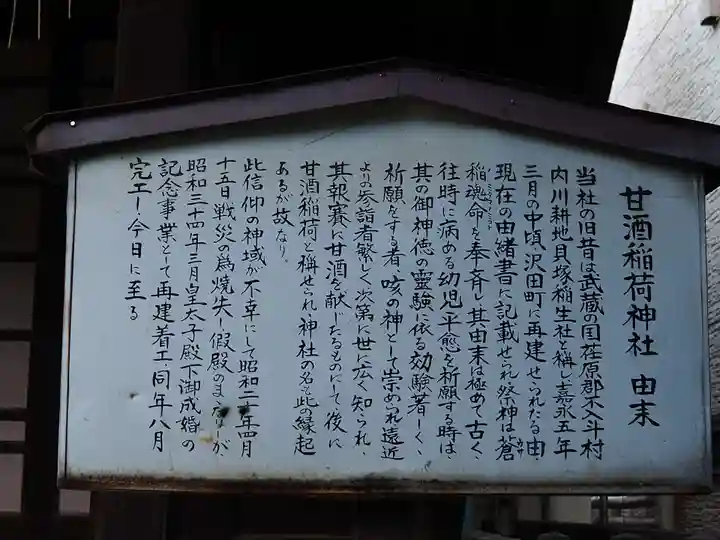 甘酒稲荷神社 由末
当社の旧昔は武蔵の国荏原郡不入斗村
内川耕地貝塚稲生社と稱し嘉永五年
三月の中頃沢田町に再建せられたる由
現在の由緒書に記載せられ祭神は蒼
稲魂命を奉斉し其由末は極めて古く、
往時に病める幼児平愈を祈願する時は、
其の御神徳の靈験に依る効験著しく、
祈願をする者咳の神として崇められ遠近
よりの参詣者繁しく次第に世に広く知られ、
其報賽に甘酒を献じたるものにして後に
甘酒稲荷と稱せられ神社の名も此の縁起
あるが故なり。
此信仰の神域が不幸にして昭和二十年四月
十五日戦災の爲焼失し假殿のまゝなりしが
昭和三十四年三月皇太子殿下御成婚の
記念事業として再建着工、同年八月
完工し今日に至る